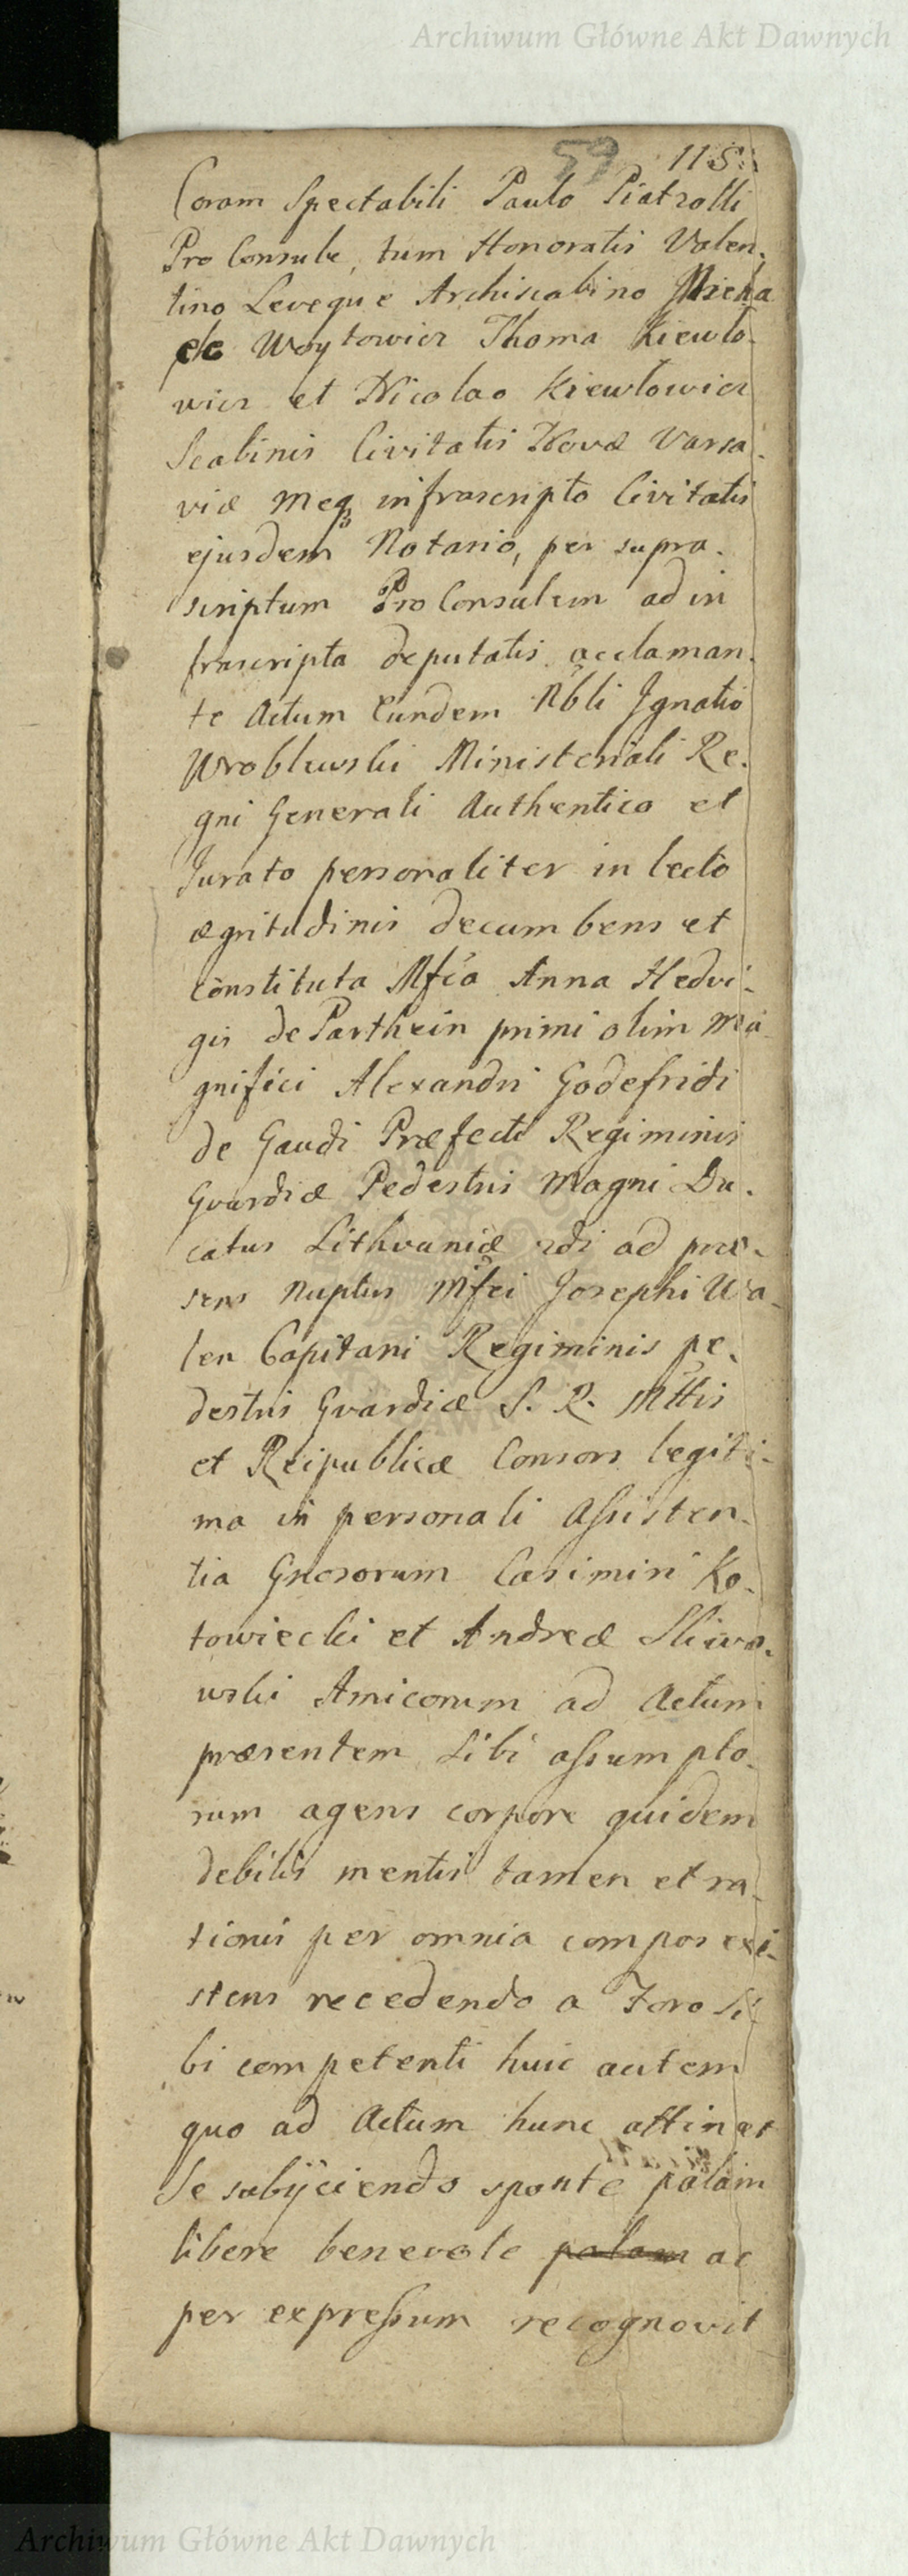 Archiwum Główne Akt Dawnych
59 115.
Coram Spectabili Paulo Piatrolli
Pro Consule, tum Honoratis Valen-
tino Leveque Archiscabino Micha
ele Woytowicz Thoma Kiewlo-
wicz et Nicolao Kiewlowicz
Scabinis Civitatis Novæ Varsa-
viæ Meq₃ infrascripto Civitatis
ejusdem Notario, per supra-
scriptum Pro Consulem ad in
frascripta deputatis acclaman-
te Actum Eundem Nbli Ignatio
Wroblewski Ministeriali Re-
gni Generali Authentico et
Jurato personaliter in lecto
ægritudinis decumbens et
constituta Mfca Anna Hedvi-
gis de Parthein primi olim Ma
gnifici Alexandri Godefridi
de Gaudi Præfecti Regiminis
Gvardiæ Pedestris Magni Du-
catus Lithvaniæ rdi ad præ-
sens Nuptus Mfci Josephi Wa-
len Capitani Regiminis pe-
destris Gvardiæ S. R. Mttis
et Reipublicæ Consors legiti-
ma in personali Assisten-
tia Gnosorum Casimiri Ko-
towiecki et Andreæ Sliwo-
wski Amicorum ad Actum
præsentem Sibi assumpto-
rum agens corpore quidem
debilis mentis tamen et ra-
tionis per omnia compos exi-
stens recedendo a Foro Si-
bi competenti huic autem
quo ad Actum hunc attinet
Se subijciendo sponte palam
libere benevole palam ac
per expressum recognovit
Archiwum Główne Akt Dawnych